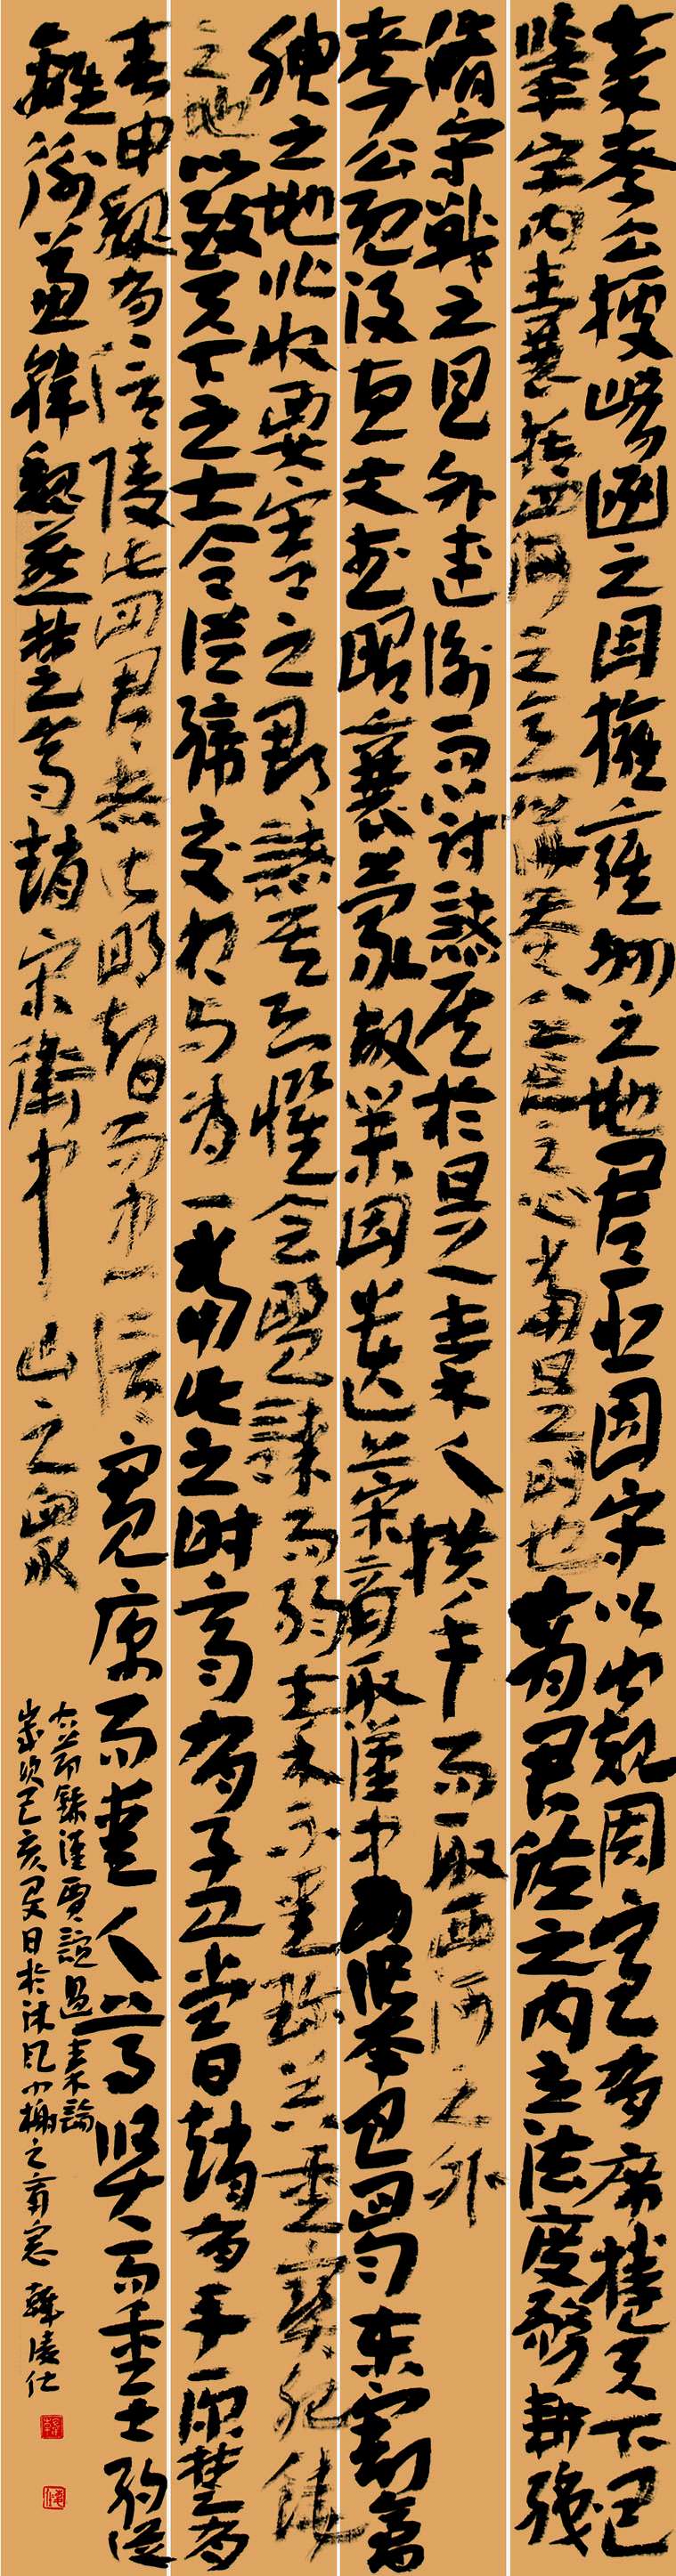 秦孝公據崤函之固擁雍州之地君臣固守以窺周室有席捲天下包
舉宇内囊括四海之意併吞八荒之心當是之時也商君佐之内立法度務耕織
脩守戰之具外連衡而鬥諸侯於是秦人拱手而取西河之外
孝公既沒惠文武昭襄蒙故業因遺策南取漢中西舉巴蜀東割膏
腴之地北收要害之郡諸侯恐懼會盟謀而弱秦不愛珍器重寶肥饒
之地以致天下之士合從締交相與為一當此之時齊有孟嘗趙有平原楚有
春申魏有信陵此四君者皆明智而忠信寬厚而愛人尊賢而重士約從
離衡兼韓魏燕楚齊趙宋衛中山之眾
右節錄漢賈誼過秦論
歲次己亥夏日於沐風小榭之南窗 韓凌仕